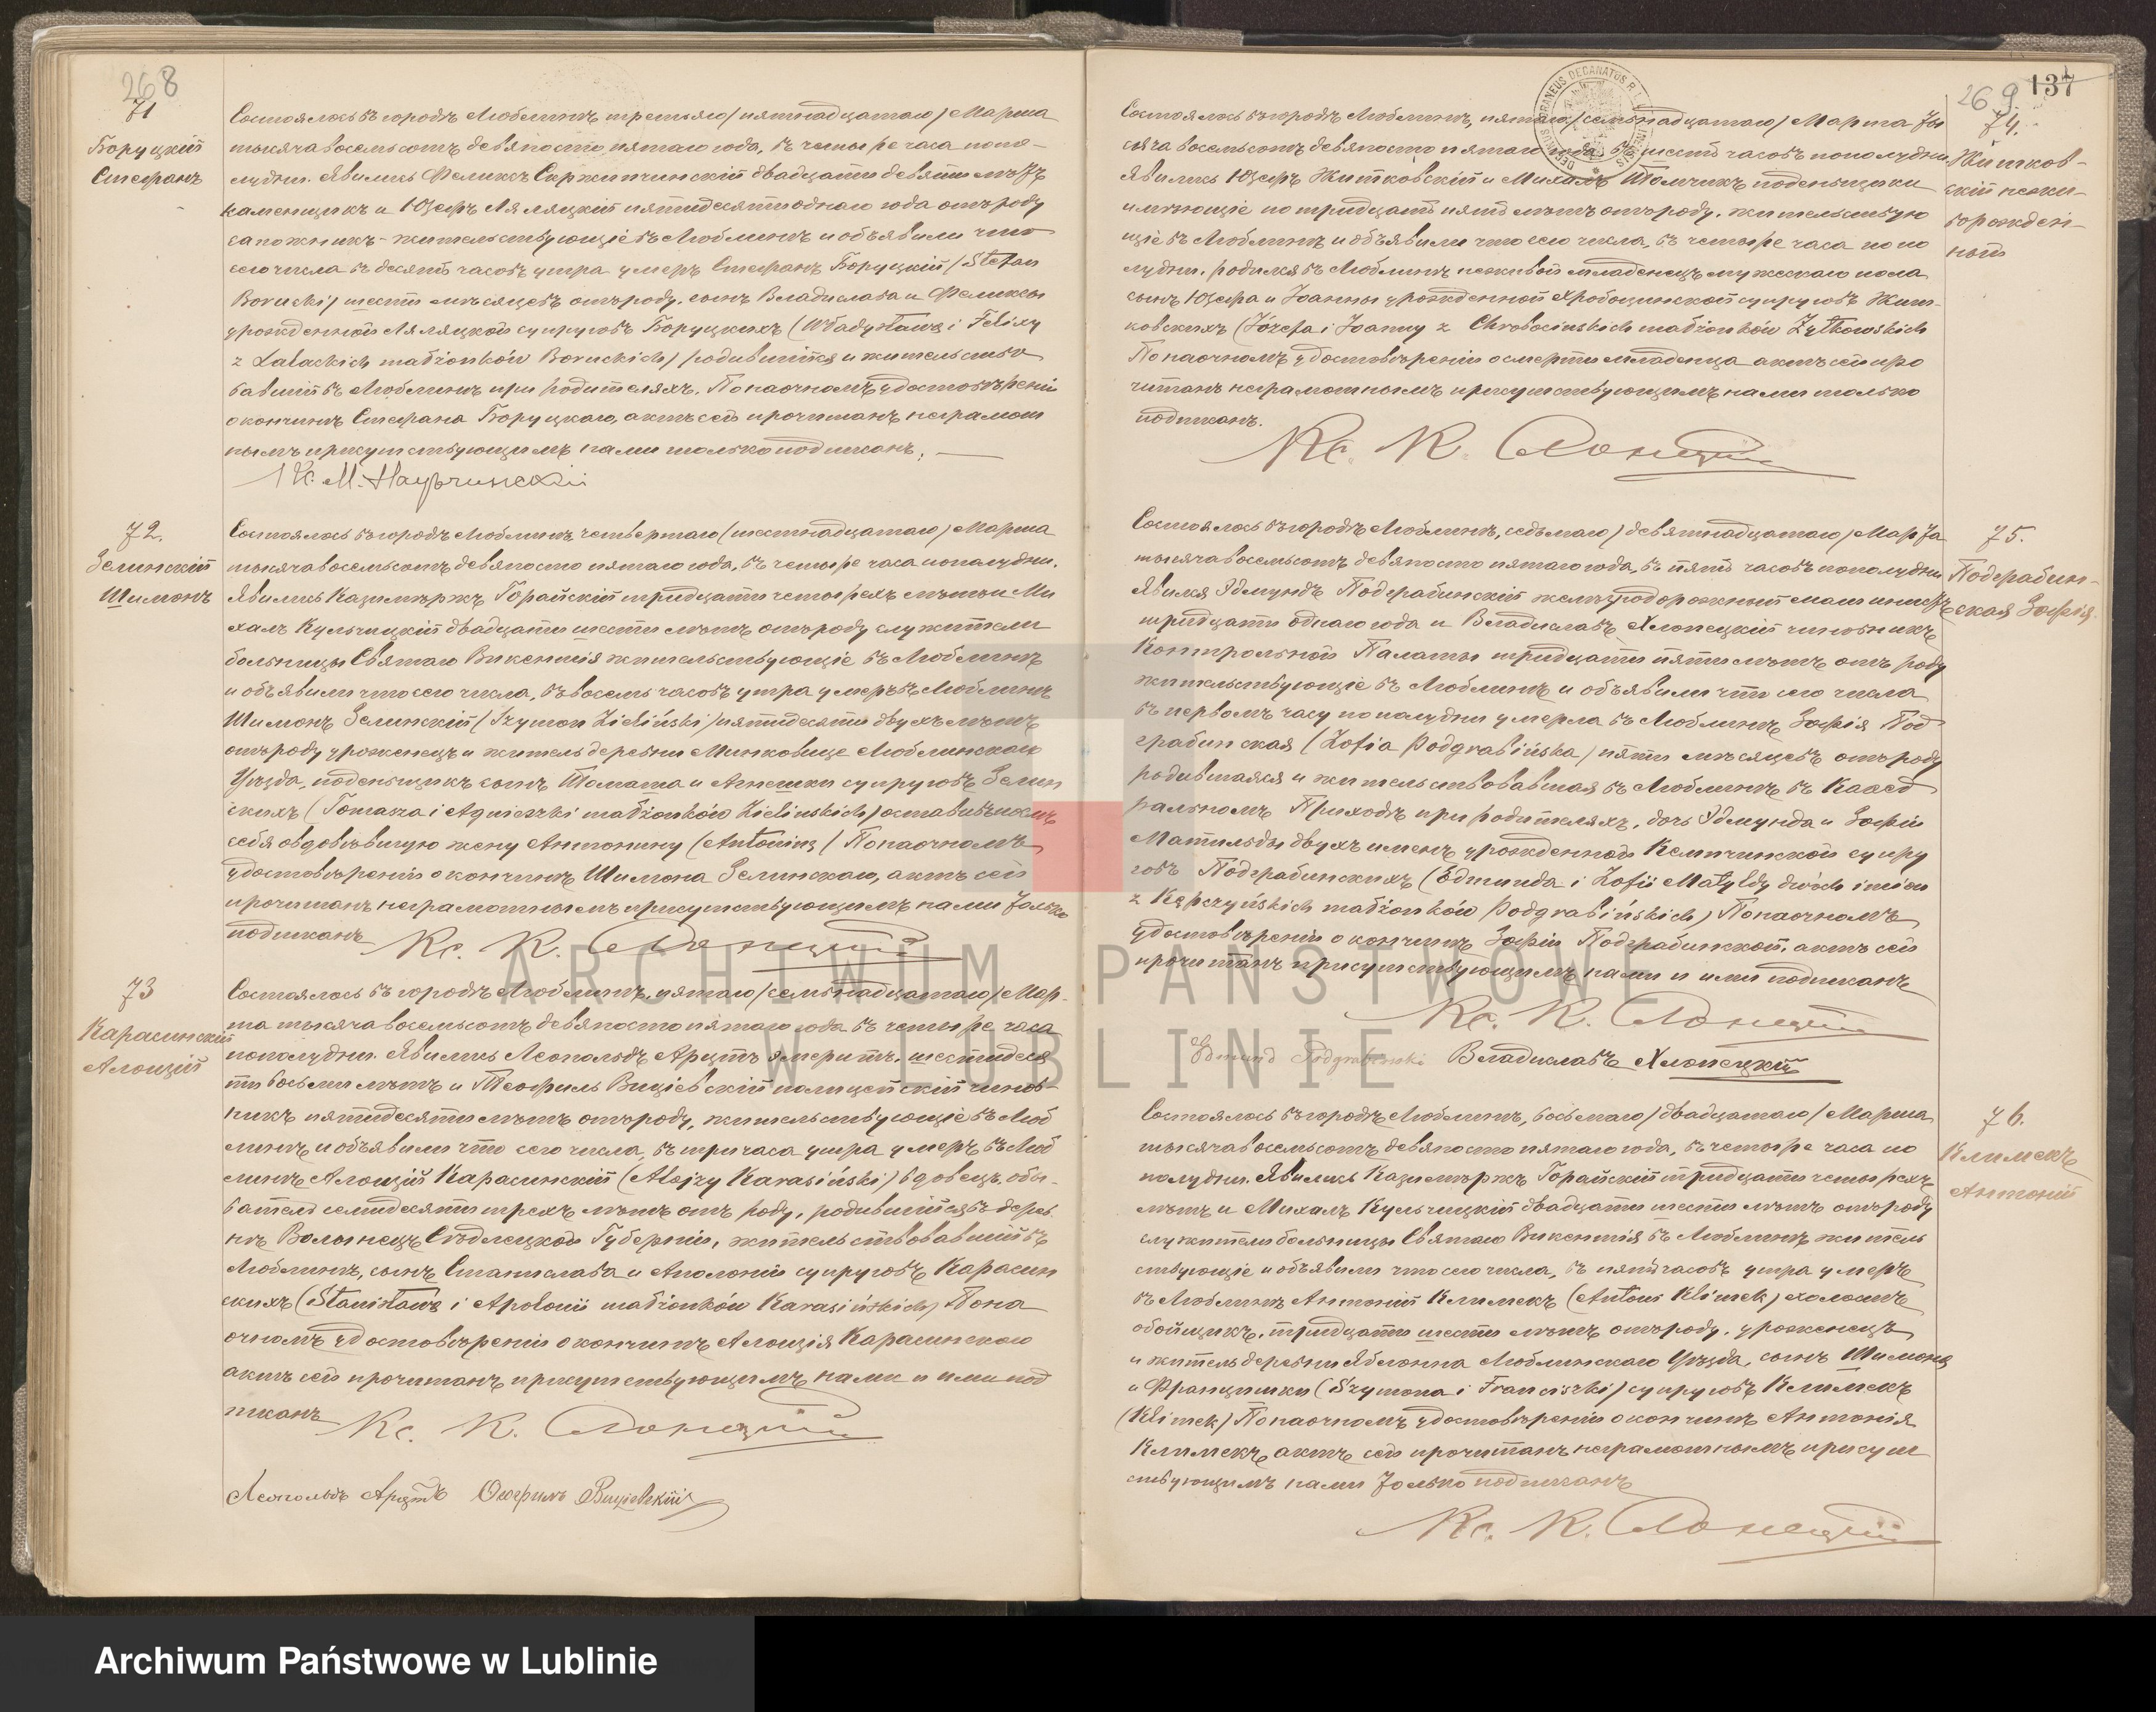 268
71
Боруцкій
Стефанъ
Состоялось въ городѣ Люблинѣ третьяго (пятнадцатаго) Марта
тысяча восемьсотъ девяносто пятаго года, въ четыре часа попо-
лудни. Явились Феликсъ Скржипчинскій двадцати девяти лѣтъ
каменщикъ и Юзефъ Ляляцкій пятидесяти одного года отъ роду
сапожникъ – жительствующіе въ Люблинѣ и объявили что
сего числа въ десять часовъ утра умеръ Стефанъ Боруцкій (Stefan
Borucki) шести мѣсяцевъ отъ роду, сынъ Владислава и Феликсы
урожденной Ляляцкой супруговъ Боруцкихъ (Władysława i Felixy
z Lalackich małżonków Boruckich) родившійся и жительство
вавшій въ Люблинѣ при родителяхъ. По наочномъ удостовѣреніи
о кончинѣ Стефана Боруцкаго, актъ сей прочитанъ неграмот
нымъ присутствующимъ нами только подписанъ.
Кс. М.
72.
Зелинскій
Шимонъ
Состоялось въ городѣ Люблинѣ, четвертаго (шестнадцатаго) Марта
тысяча восемьсотъ девяносто пятаго года, въ четыре часа пополудни.
Явились Казимѣржъ Горайскій тридцати четырехъ лѣтъ и Ми
халъ Кульчицкій двадцати шести лѣтъ отъ роду служители
больницы Святаго Викентія жительствующіе въ Люблинѣ
и объявили что сего числа, въ восемь часовъ утра умеръ въ Люблинѣ
Шимонъ Зелинскій (Szymon Zieliński) пятидесяти двухъ лѣтъ
отъ роду уроженецъ и житель деревни Минковице Люблинскаго
Уѣзда, поденьщикъ сынъ Томаша и Агнешки супруговъ Зелин
скихъ (Tomasza i Agnieszki małżonków Zielińskich) оставивъ послѣ
себя овдовѣвшую жену Антонину (Antoninę) По наочномъ
удостовѣреніи о кончинѣ Шимона Зелинскаго, актъ сей
прочитанъ неграмотнымъ присутствующимъ нами только
подписанъ Кс. К.
73
Карасинскій
Алоизій
Состоялось въ городѣ Люблинѣ, пятаго (семьнадцатаго) Мар-
та тысяча восемьсотъ девяносто пятаго года въ четыре часа
пополудни. Явились Леопольдъ Арцтъ эмеритъ, шестидеся
ти восьми лѣтъ и Теофиль Вицѣевскій полицейскій чинов-
никъ пятидесяти лѣтъ отъ роду, жительствующіе въ Люб
линѣ и объявили что сего числа, въ три часа утра умеръ въ Люб
линѣ Алоизій Карасинскій (Alojzy Karasiński) вдовецъ, обы-
ватель семидесяти трехъ лѣтъ отъ роду, родившійся въ дерев
нѣ Волынецъ Сѣдлецкой Губерніи, жительствовавшій въ
Люблинѣ, сынъ Станислава и Аполоніи супруговъ Карасин
скихъ (Stanisława i Apolonii małżonków Karasińskich) По на
очномъ удостовѣреніи о кончинѣ Алоизія Карасинскаго
актъ сей прочитанъ присутствующимъ, нами и ими под
писанъ Кс. К.
Леопольдъ Арцтъ Теофиль Вицѣевскій
269 137
74.
Житков-
скій нежи-
ворожден-
ный
Состоялось въ городѣ Люблинѣ, пятаго (семьнадцатаго) Марта ты
сяча восемьсотъ девяносто пятаго года, въ шесть часовъ пополудни.
Явились Юзефъ Житковскій и Михалъ Томчикъ поденьщики
имѣющіе по тридцать пять лѣтъ отъ роду, жительствую
щіе въ Люблинѣ и объявили что сего числа, въ четыре часа по по
лудни, родился въ Люблинѣ неживой младенецъ мужескаго пола
сынъ Юзефа и Іоанны урожденной Хробоцинской супруговъ Жит-
ковскихъ (Józefa i Joanny z Chrobocinskich małżonków Żytkowskich
По наочномъ удостовѣреніи о смерти младенца актъ сей про
читанъ неграмотнымъ присутствующимъ нами только
подписанъ.
Кс. К.
75.
Подграбин-
ская Зофія
Состоялось въ городѣ Люблинѣ, седьмаго (девятнадцатаго) Марта
тысяча восемьсотъ девяносто пятаго года, въ пять часовъ пополудни
Явился Эдмундъ Подграбинскій желѣзнодорожный машинистъ
тридцати одного года и Владиславъ Хлопецкій чиновникъ
Контрольной Палаты тридцати пяти лѣтъ отъ роду
жительствующіе въ Люблинѣ и объявили что сего числа
въ первомъ часу по полудни умерла въ Люблинѣ Зофія Под
грабинская (Zofia Podgrabińska) пяти мѣсяцевъ отъ роду
родившаяся и жительствовавшая въ Люблинѣ въ Каѳед
ральномъ Приходѣ при родителяхъ, дочь Эдмунда и Зофіи
Матильды двухъ именъ урожденной Кемпчинской супру
говъ Подграбинскихъ (Edmunda i Zofii Matyldy dwóch imion
z Kępczyńskich małżonków Podgrabińskich) По наочномъ
удостовѣреніи о кончинѣ Зофіи Подграбинской, актъ сей
прочитанъ присутствующимъ нами и ими подписанъ
Кс. К.
Edmund Podgrabinski Владиславъ Хлопецкій
76.
Климекъ
Антоній
Состоялось въ городѣ Люблинѣ, восьмаго (двадцатаго) Марта
тысяча восемьсотъ девяносто пятаго года, въ четыре часа по
полудни. Явились Казимѣржъ Горайскій тридцати четырехъ
лѣтъ и Михалъ Кульчицкій двадцати шести лѣтъ отъ роду
служители больницы Святаго Викентія въ Люблинѣ житель
ствующіе и объявили что сего числа, въ пять часовъ утра умеръ
въ Люблинѣ Антоній Климекъ (Antoni Klimek) холостъ
обойщикъ, тридцати шести лѣтъ отъ роду, уроженецъ
и житель деревни Яблонна Люблинскаго Уѣзда, сынъ Шимона
и Францишки (Szymona i Franciszki) супруговъ Климекъ
(Klimek) По наочномъ удостовѣреніи о кончинѣ Антонія
Климекъ, актъ сей прочитанъ неграмотнымъ присут
ствующимъ нами только подписанъ
Кс. К.
ARCHIWUM PAŃSTWOWE
W LUBLINIE
Archiwum Państwowe w Lublinie